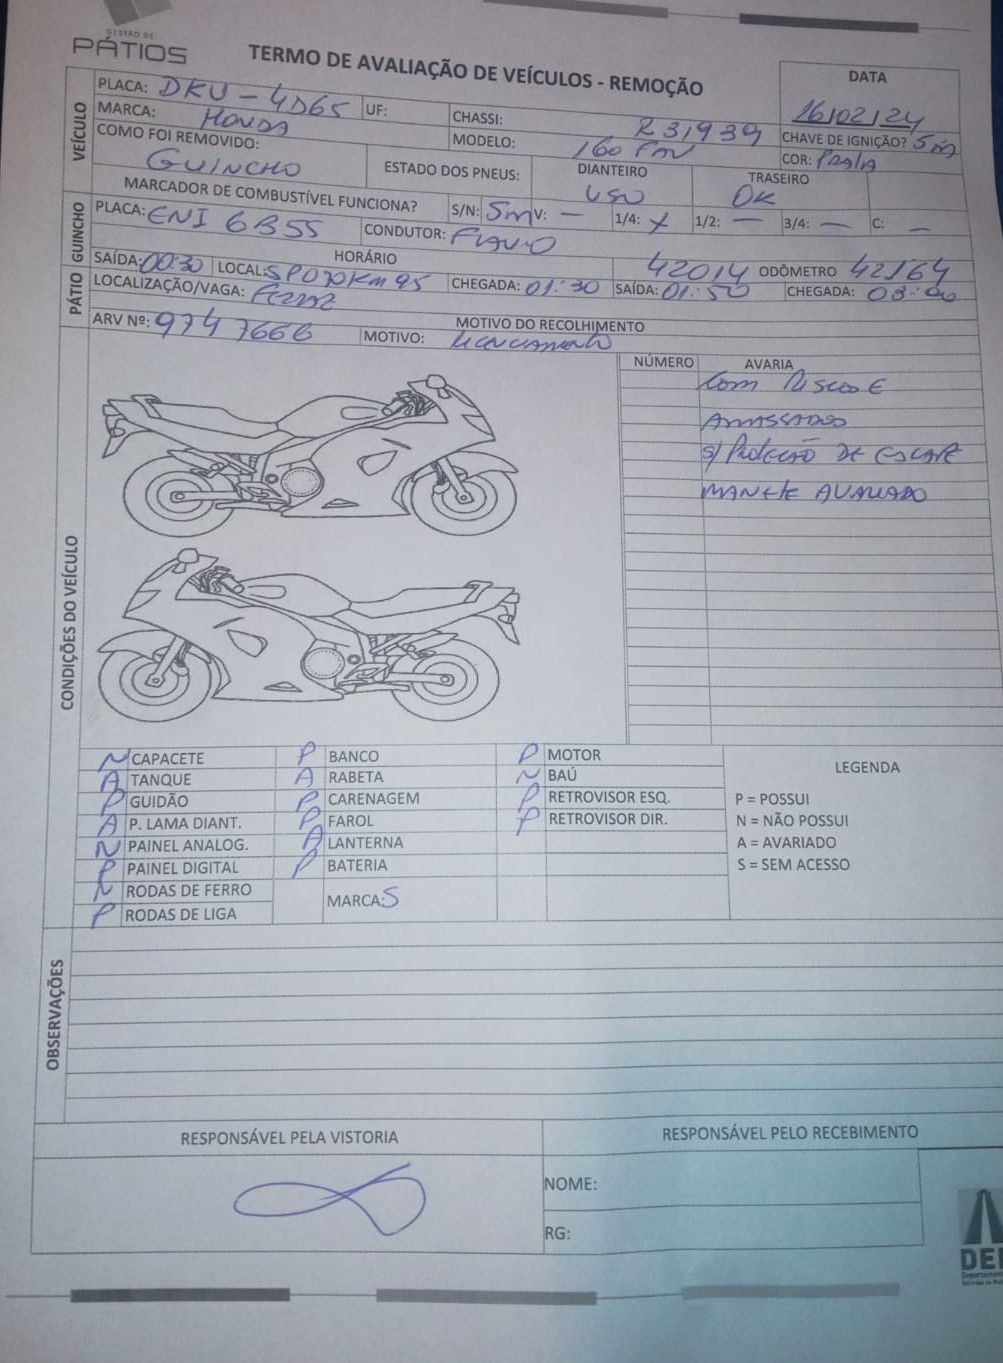 GESTÃO DE
PÁTIOS
TERMO DE AVALIAÇÃO DE VEÍCULOS - REMOÇÃO
DATA
16/02/24
VEÍCULO
PLACA: DKU-4D65 UF: CHASSI: R31939 CHAVE DE IGNIÇÃO? Sim
MARCA: HONDA MODELO: 160 FAN COR: PRATA
COMO FOI REMOVIDO: GUINCHO ESTADO DOS PNEUS: DIANTEIRO USO TRASEIRO OK
MARCADOR DE COMBUSTÍVEL FUNCIONA? S/N: Sim V: — 1/4: X 1/2: — 3/4: — C: —
GUINCHO
PLACA: ENI 6B55 CONDUTOR: FLAVIO
HORÁRIO 42014 ODÔMETRO 42164
SAÍDA: 00:30 LOCAL: SP070 Km 95 CHEGADA: 01:30 SAÍDA: 01:50 CHEGADA: 03:00
PÁTIO
LOCALIZAÇÃO/VAGA:
MOTIVO DO RECOLHIMENTO
ARV Nº: 9747666 MOTIVO: Licenciamento
CONDIÇÕES DO VEÍCULO
NÚMERO AVARIA
Com Riscos E
AMASSADOS
S/ PROTEÇÃO DE ESCAPE
MANETE AVARIADO
N CAPACETE P BANCO P MOTOR
A TANQUE A RABETA N BAÚ
P GUIDÃO P CARENAGEM P RETROVISOR ESQ.
A P. LAMA DIANT. P FAROL P RETROVISOR DIR.
N PAINEL ANALOG. A LANTERNA
P PAINEL DIGITAL P BATERIA
N RODAS DE FERRO MARCA: S
P RODAS DE LIGA
LEGENDA
P = POSSUI
N = NÃO POSSUI
A = AVARIADO
S = SEM ACESSO
OBSERVAÇÕES
RESPONSÁVEL PELA VISTORIA RESPONSÁVEL PELO RECEBIMENTO
NOME:
RG:
DE